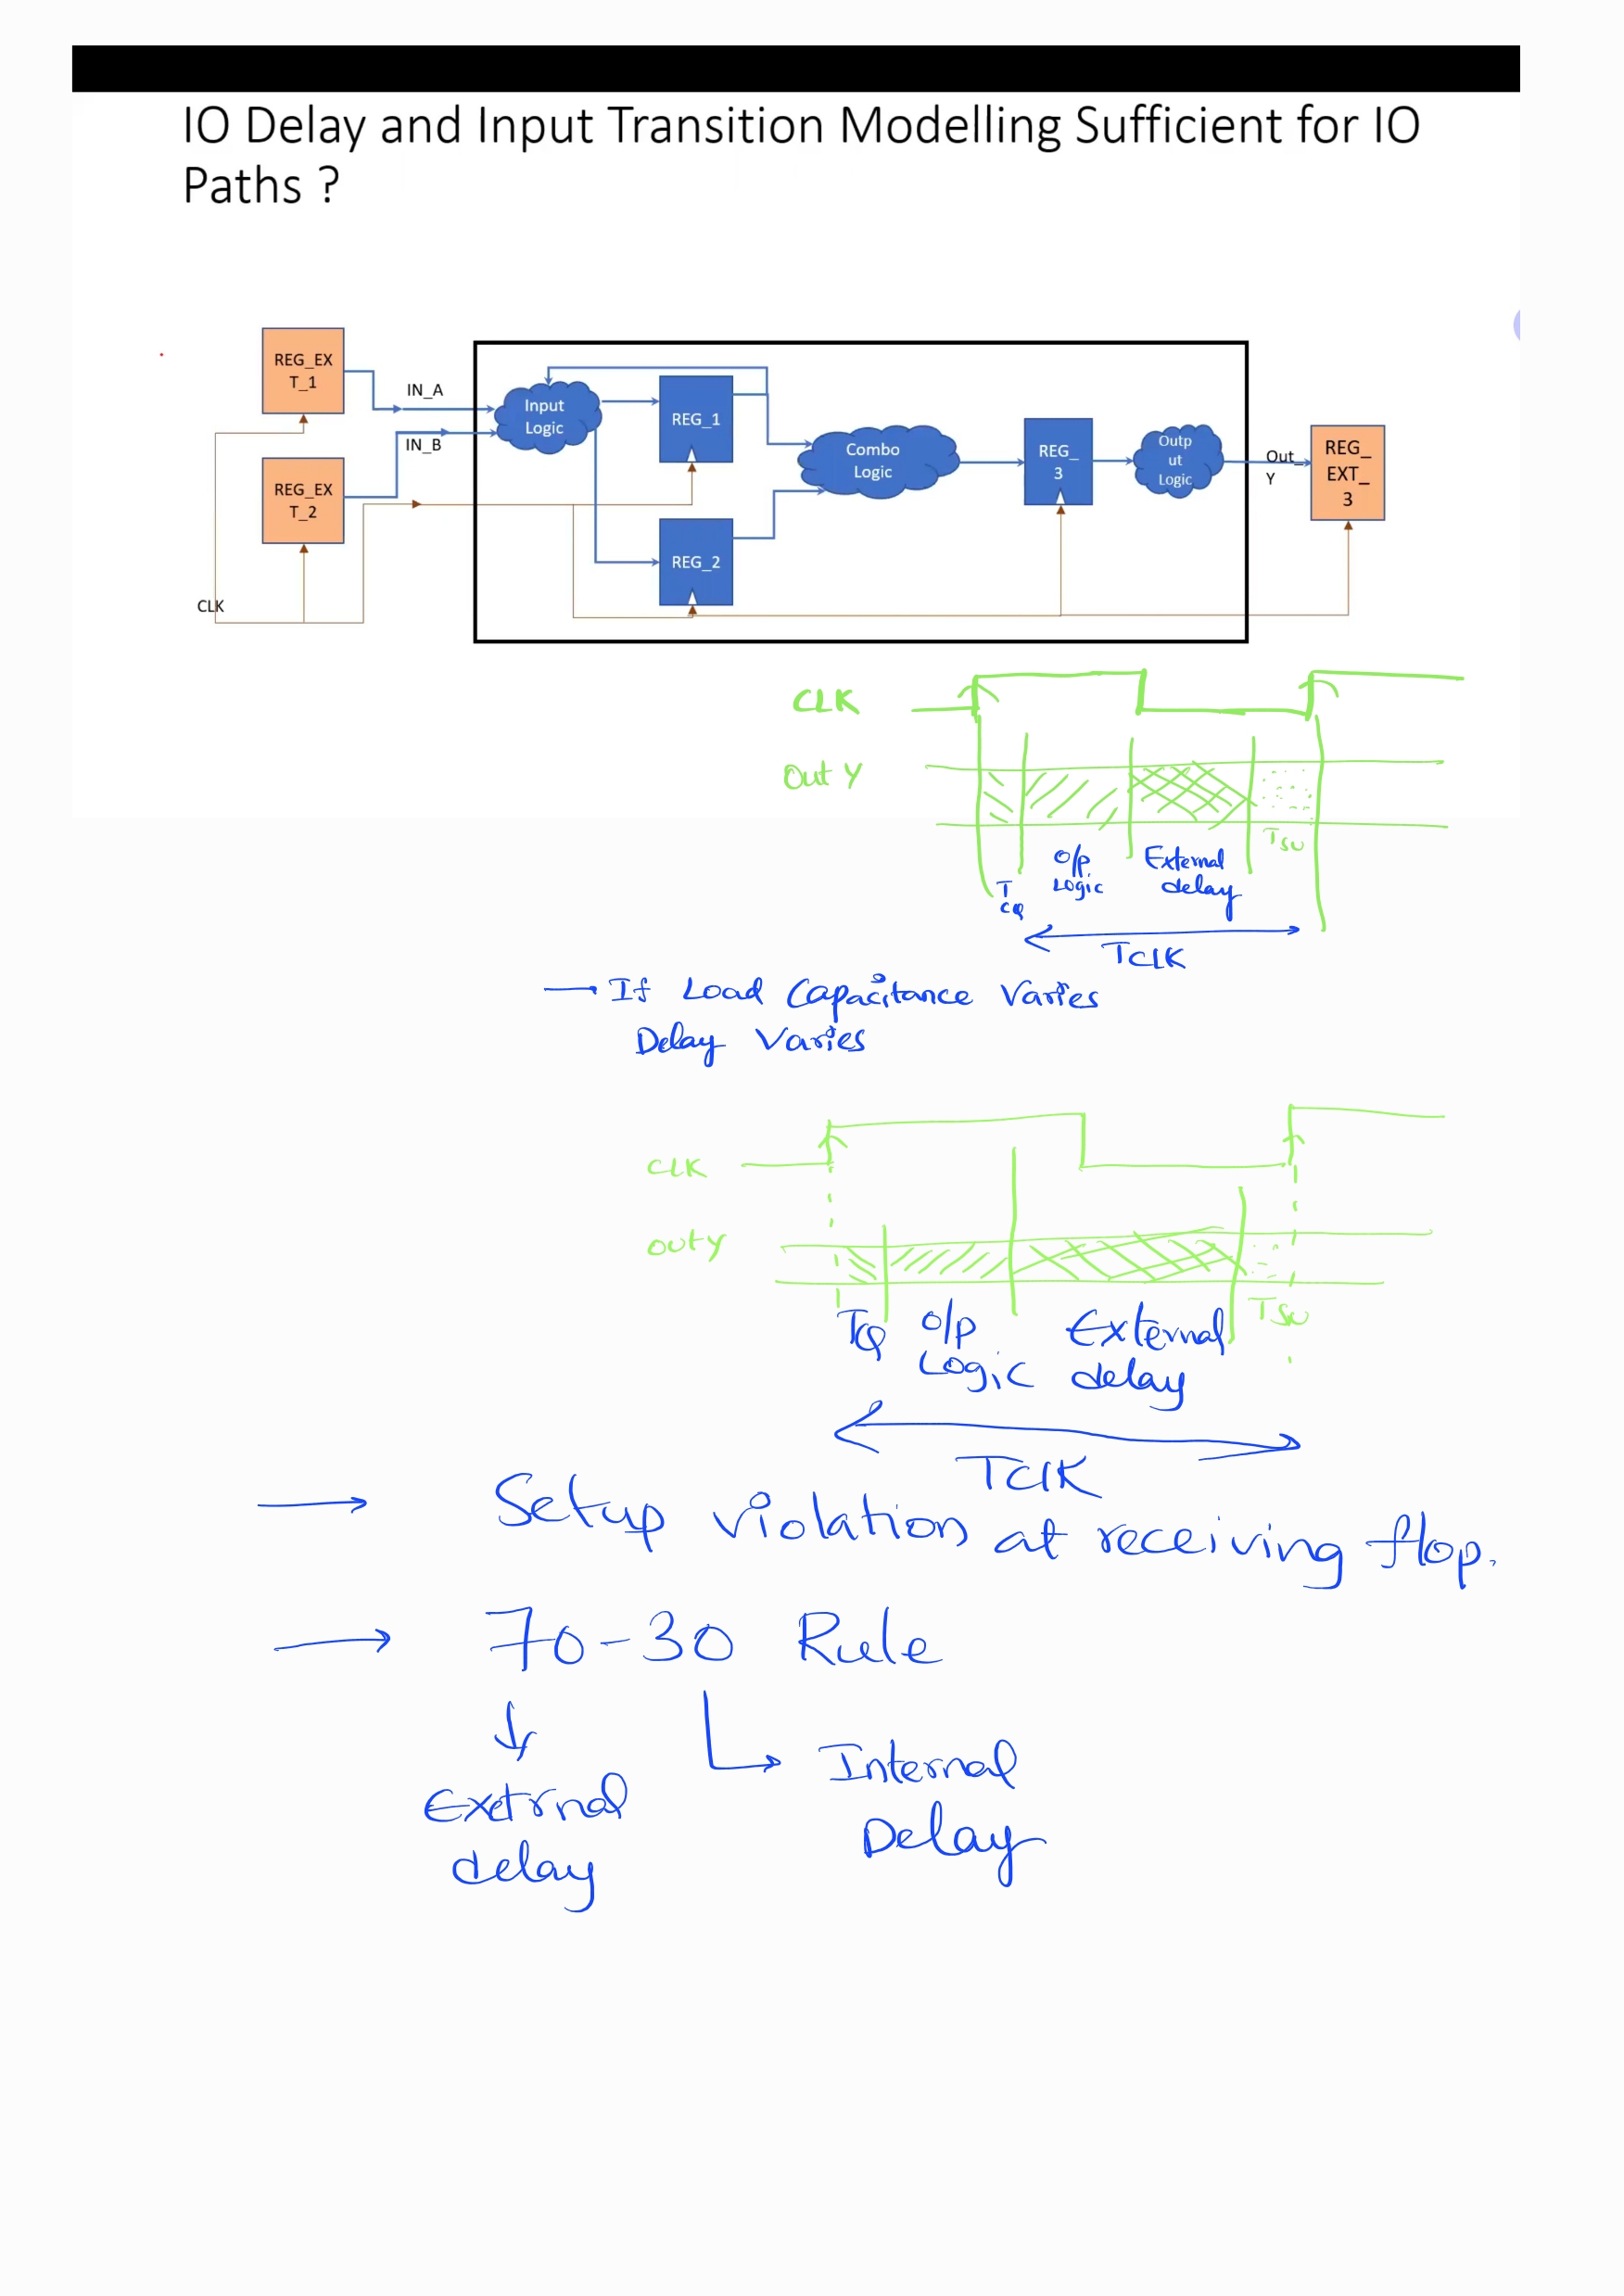 IO Delay and Input Transition Modelling Sufficient for IO
Paths ?
REG_EX
T_1
IN_A
IN_B
REG_EX
T_2
CLK
Input
Logic
REG_1
REG_2
Combo
Logic
REG_
3
Outp
ut
Logic
Out_
Y
REG_
EXT_
3
CLK
Out Y
TSU
TCQ
O/p
Logic
External
delay
TCLK
→ If Load Capacitance Varies
Delay Varies
CLK
OUTY
TCQ
O/p
Logic
External
delay
TSU
TCLK
→ Setup violation at receiving flop.
→ 70-30 Rule
Extrnal
delay
Internal
Delay